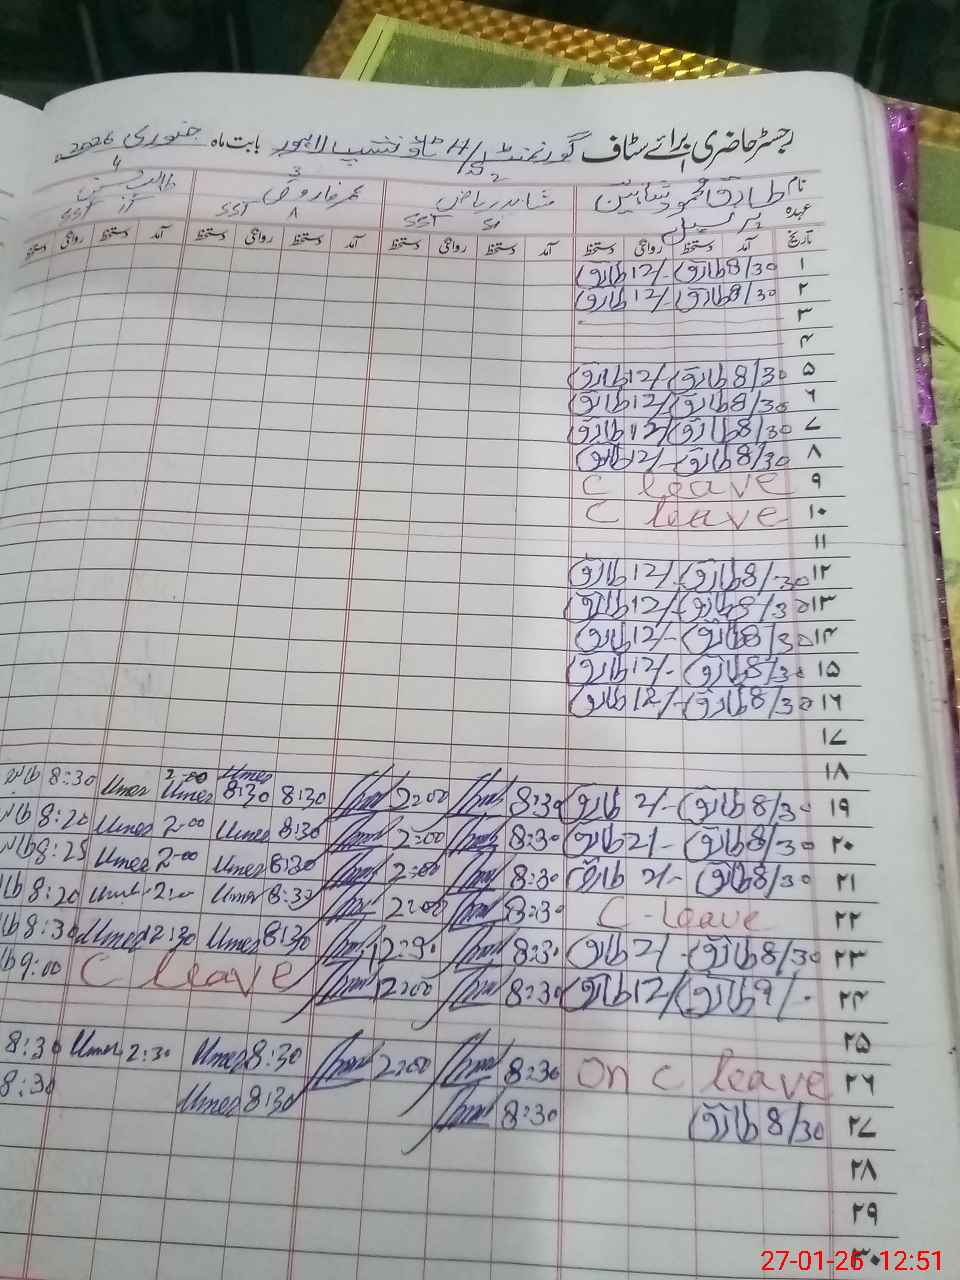 رجسٹر حاضری برائے سٹاف گورنمنٹ ہائی ٹاؤن شپ لاہور بابت ماہ جنوری 2026ء
نام 1 طارق محمود شاہین 2 شاہد ریاض 3 عمر فاروق 4
عہدہ پرنسپل SST SST SST IT
تاریخ آمد دستخط روانگی دستخط آمد دستخط روانگی دستخط آمد دستخط روانگی دستخط آمد دستخط روانگی دستخط
۱ 8/30 طارق 12/- طارق
۲ 8/30 طارق 12/- طارق
۳
۴
۵ 8/30 طارق 12/- طارق
۶ 8/30 طارق 12/- طارق
۷ 8/30 طارق 12/ طارق
۸ 8/30 طارق 12/- طارق
۹ C leave
۱۰ C leave
۱۱
۱۲ 8/30 طارق 12/- طارق
۱۳ 8/30 طارق 12/- طارق
۱۴ 8/30 طارق 12/- طارق
۱۵ 8/30 طارق 12/- طارق
۱۶ 8/30 طارق 12/- طارق
۱۷
۱۸
۱۹ 8/30 طارق 2/- طارق 8:30 2:00 8:30 8:30 Umer 2-00 Umer Umer 8:30
۲۰ 8/30 طارق 2/- طارق 8:30 2:00 8:30 Umer 2-00 Umer 8:20
۲۱ 8/30 طارق 2/- طارق 8:30 2:00 8:30 Umer 2-00 Umer 8:25
۲۲ C-leave 8:30 2:00 8:30 Umer 2:00 Umer 8:20
۲۳ 8/30 طارق 2/- طارق 8:30 12:30 8:30 Umer 12:30 Umer 8:30
۲۴ 9/- طارق 12/ طارق 8:30 12:00 C leave 9:00
۲۵
۲۶ On C leave 8:30 2:00 8:30 Umer 2:30 Umer 8:30
۲۷ 8/30 طارق 8:30 8:30 Umer 8:30
۲۸
۲۹
۳۰
27-01-26 12:51